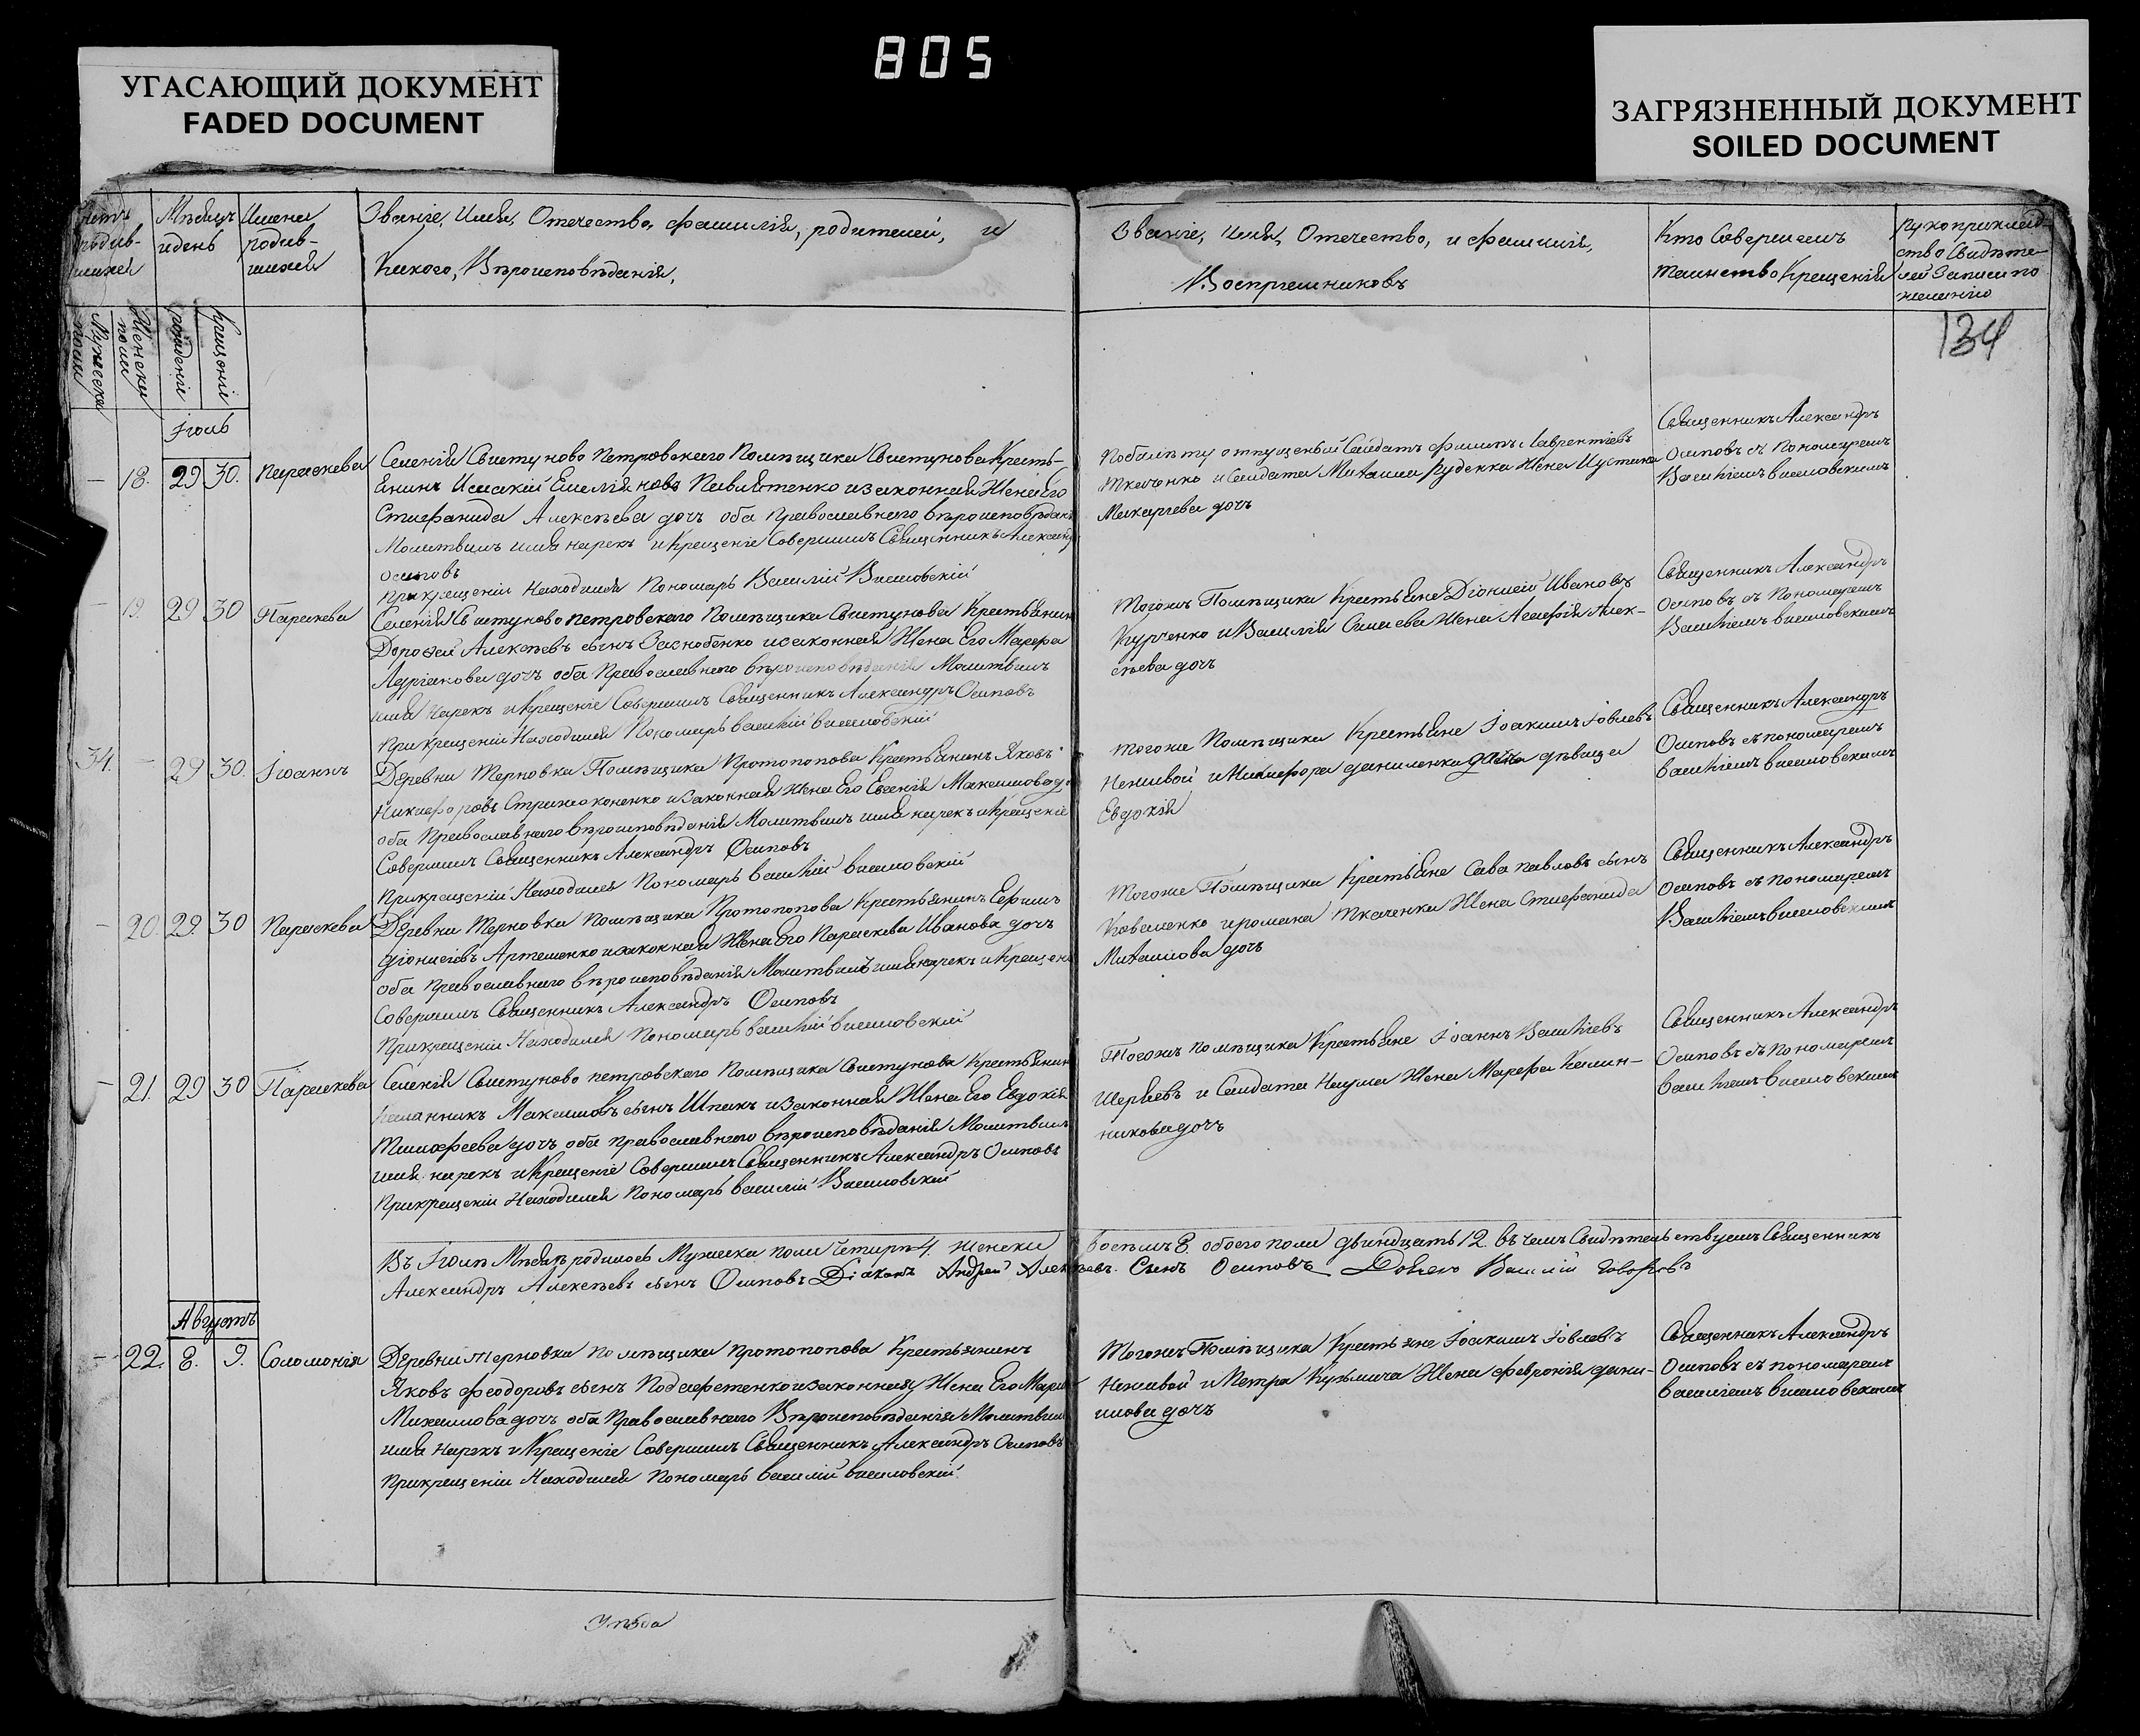 805
УГАСАЮЩИЙ ДОКУМЕНТ
FADED DOCUMENT
ЗАГРЯЗНЕННЫЙ ДОКУМЕНТ
SOILED DOCUMENT
Мѣсяцъ
идень
Имена
родив-
шихся
Званіе, Имя, Отечество, фамилія, родителей, и
Какого, Вѣроисповѣданія,
Званіе, имя, Отечество, и фамилія,
Воспріемниковъ
Кто Совершалъ
таинство Крещенія
Рукоприклад-
ство Свидѣте-
лей Записи по
желанію
134
Іюль
18. 29 30. Параскева
Селенія Свистуново петровскаго Помѣщика Свистунова Кресть-
янинъ Исаакій Емелiяновъ Павлятенко изаконная Жена Его
Стиефанида Алексѣева дочъ оба Православнаго вѣроисповѣдан
Молитвилъ имя нарекъ икрещеніе Совершилъ Священникъ Александ
осиповъ
прикрещеніи Находился Пономарь Василій Висловскій
Побилѣту отпущеный Салдатъ филипъ Лаврентіевъ
Ткаченко исалдата Михаила Руденка Жена Иустина
Макаріева дочъ
Священникъ Александръ
Осиповъ съ Пономаремъ
Василіемъ висловскимъ
19. 29 30 Параскева
Селенія Свистуново петровскаго Помѣщика Свистунова Крестьянин
Дорофей Алексѣевъ сынъ Захнобенко изаконная Жена Его Марфа
дочъ оба Православнаго вѣроисповѣданія Молитвилъ
имя Нарекъ икрещеніе Совершилъ Священникъ Александръ Осиповъ
Прикрещеніи Находился Пономарь василій висловскій
Тогожъ Помѣщика Крестьяне Діонисій Ивановъ
Курченко иВасилія Жена Агафія Алек-
сѣева дочъ
Священникъ Александръ
Осиповъ съ Пономаремъ
Василіемъ висловскимъ
34. - 29 30. Іоаннъ
Деревни Терновки Помѣщика Протопопова Крестьянинъ Яковъ
Никифоровъ изаконная Жена Его Евгенія Максимова до
оба Православнаго вѣроисповѣданія Молитвилъ имя нарекъ икрещеніе
Совершилъ Священникъ Александръ Осиповъ
Прикрещеніи Находился Пономарь василій висловскій
тогоже Помѣщика Крестьяне Іоакимъ Іовлевъ
Неживой иНикифора даниленка дочь дѣвица
Евдокія
Священникъ Александръ
Осиповъ съ пономаремъ
василіемъ висловскимъ
20. 29. 30 Параскева
Деревни Терновки Помѣщика Протопопова Крестьянинъ Ефимъ
Діонисіевъ Артеменко изаконная Жена Его Параскева Иванова дочъ
оба Православнаго вѣроисповѣданія Молитвилъ имя нарекъ икрещені
Совершилъ Священникъ Александръ Осиповъ
Прикрещеніи Находился Пономарь василій висловскій
тогоже Помѣщика Крестьяне Сава павловъ сынъ
Коваленко иромана Ткаченка Жена Стиефанида
Михаилова дочъ
Священникъ Александръ
осиповъ съ пономаремъ
Василіемъ висловскимъ
21. 29 30 Параскева
Селенія Свистуново петровскаго Помѣщика Свистунова Крестьянин
Максимовъ сынъ Шпакъ изаконная Жена Его Евдокія
Тимофеева дочъ оба православнаго вѣроисповѣданія Молитвилъ
имя нарекъ икрещеніе Совершилъ Священникъ Александръ Осиповъ
Прикрещеніи Находился Пономарь василій Висловскій
Тогожъ помѣщика Крестьяне Іоаннъ Василіевъ
и Салдата Наума Жена Марфа Калин-
никова дочъ
Священникъ Александръ
Осиповъ съ Пономаремъ
василіемъ висловскимъ
Въ Іюлѣ Мѣсяцѣ родилось Мужеска пола Четыри 4. женска восѣмъ 8. обоего пола двѣнадцать 12. въ чемъ Свидѣтельствуемъ Священникъ
Александръ Алексѣевъ сынъ Осиповъ Діаконъ Андрей Алексѣевъ Сынъ Осиповъ Василій
Августъ
22. 8. 9. Соломонія
Деревни терновки помѣщика протопопова Крестьянинъ
Яковъ феодоровъ сынъ изаконная Жена Его
Михаилова дочъ оба Православнаго Вѣроисповѣданія Молитвил
имя нарекъ икрещеніе Совершилъ Священникъ Александръ Осиповъ
Прикрещеніи Находился Пономарь василій висловскій.
Тогожъ Помѣщика Крестьяне Іоакимъ Іовлевъ
Неживой иПетра Кузьмича Жена февронія дани-
лова дочъ
Священникъ Александръ
Осиповъ съ пономаремъ
василіемъ висловскимъ
Уѣзда